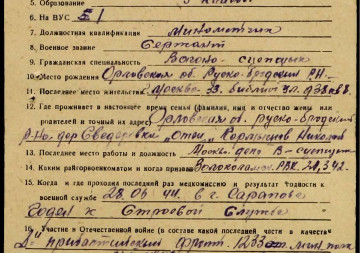 5. Образование
6. На ВУС 51
7. Должностная квалификация Минометчик
8. Военное звание Сержант
9. Гражданская специальность Вагоно-сцепщик
10. Место рождения Орловская об. Руско-Бродский Р.Н.
11. Последнее место жительства г. Москва 33
12. Где проживает в настоящее время семья (фамилия, имя и отчество жены или
родителей и точный их адрес) Орловская об. Руско-Бродский
Р-но. дер. "Отец" Николай
13. Последнее место работы и должность Москв. депо В-сцепщик
14. Каким райгорвоенкоматом и когда призван Волоколамск. РВК. 24,3,42.
15. Когда и где проходил последний раз медкомиссию и результат годности к
военной службе 28.06.44. в г. Сарапове
Годен к Строевой Службе
16. Участие в Отечественной войне (в составе какой последней части в качестве
2й прибалтийский фронт. 1233